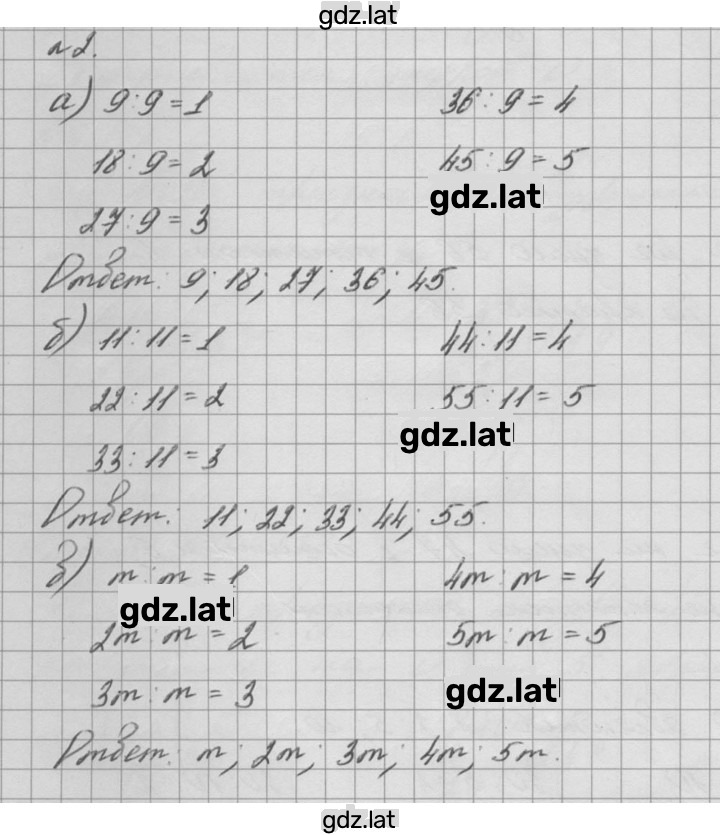 gdz.lat
№2.
а) 9:9=1 36:9=4
18:9=2 45:9=5
gdz.lat
27:9=3
Ответ: 9; 18; 27; 36; 45.
б) 11:11=1 44:11=4
22:11=2 55:11=5
gdz.lat
33:11=3
Ответ: 11; 22; 33; 44; 55.
в) m:m=1 4m:m=4
gdz.lat
2m:m=2 5m:m=5
3m:m=3
gdz.lat
Ответ: m; 2m; 3m; 4m; 5m.
gdz.lat